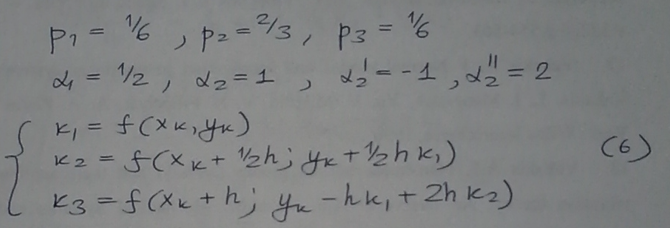 p₁ = 1/6 , p₂ = 2/3 , p₃ = 1/6
α₁ = 1/2 , α₂ = 1 , α₂ᴵ = -1 , α₂ᴵᴵ = 2
κ₁ = f(xₖ, yₖ)
κ₂ = f(xₖ + 1/2h; yₖ + 1/2hκ₁) (6)
κ₃ = f(xₖ + h; yₖ - hκ₁ + 2hκ₂)